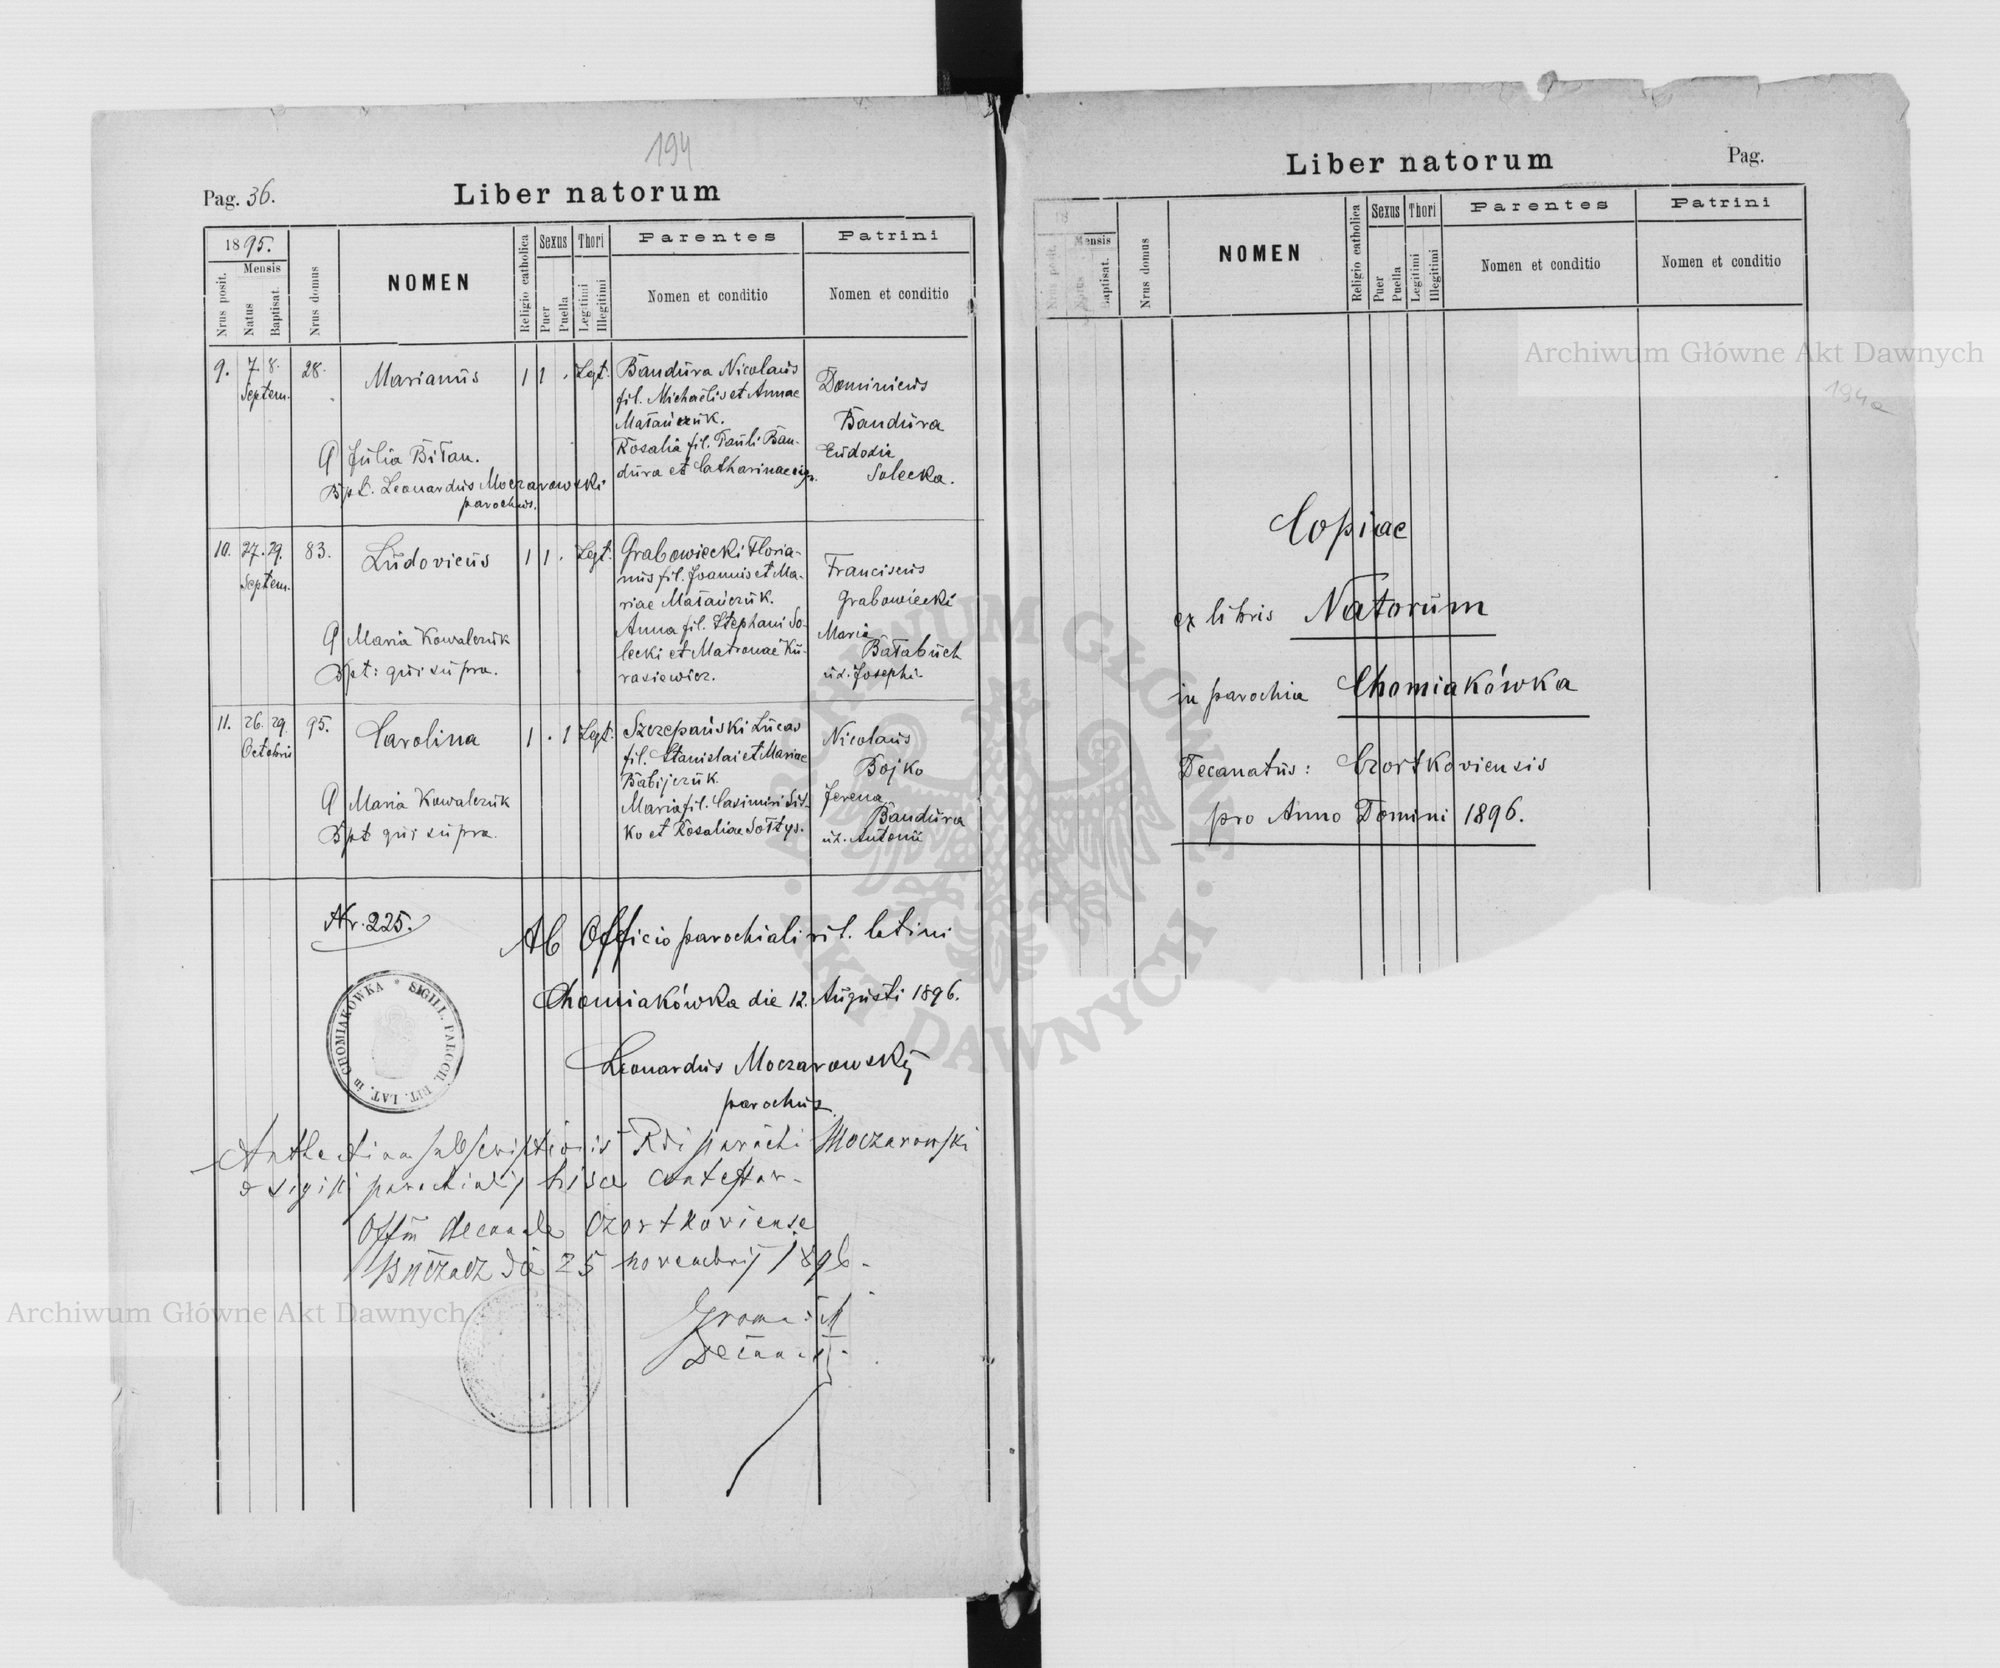 194
Pag. 36.
Liber natorum
1895.
Nrus posit.
Mensis
Natus
Baptisat.
Nrus domus
NOMEN
Religio catholica
Sexus
Puer
Puella
Thori
Legitimi
Illegitimi
Parentes
Nomen et conditio
Patrini
Nomen et conditio
9. 7. 8. Septem. 28. Marianus 1 1 . Legt.
Bandura Nicolaus
fil. Michaëlis et Annae
Matańczuk.
Rosalia fil. Pauli Ban-
dura et Catharinae
Dominicus
Bandura
Eudosia
Solecka.
O Julia Biłan.
Bpt. Leonardus Moczarowski
parochus.
10. 27. 29. Septem. 83. Ludovicus 1 1 . Legt.
Grabowiecki Floria-
nus fil. Joannis et Ma-
riae Matańczuk.
Anna fil. Stephani So-
lecki et Matronae Ku-
rasiewicz.
Franciscus
Grabowiecki
Maria
Bałabuch
ux. Josephi.
O Maria Kowalczuk
Bpt: qui supra.
11. 26. 29. Octobris 95. Carolina 1 . 1 Legt.
Szczepański Lucas
fil. Stanislai et Mariae
Babijczuk.
Maria fil. Casimiri Sit-
ko et Rosaliae Sołtys.
Nicolaus
Bojko
Jerena
Bandura
ux. Antonii
O Maria Kowalczuk
Bpt qui supra.
Nr. 225.
Ab Officio parochiali rit. latini
Chomiakówka die 12. Augusti 1896.
Leonardus Moczarowski
parochus
SIGILL. PAROCH. RIT. LAT. in CHOMIAKÓWKA
subscriptionis Rdi parochi Moczarowski
& sigilli parochialis hisce
Offm decanale Czortkoviense
Buczacz die 25 novembris 1896.
Liber natorum
Pag.
Nrus posit.
Mensis
Natus
Baptisat.
Nrus domus
NOMEN
Religio catholica
Sexus
Puer
Puella
Thori
Legitimi
Illegitimi
Parentes
Nomen et conditio
Patrini
Nomen et conditio
194a
Copiae
ex libris Natorum
in parochia Chomiakówka
Decanatus: Czortkoviensis
pro Anno Domini 1896.
Archiwum Główne Akt Dawnych
Archiwum Główne Akt Dawnych
ARCHIWUM GŁÓWNE · AKT DAWNYCH ·